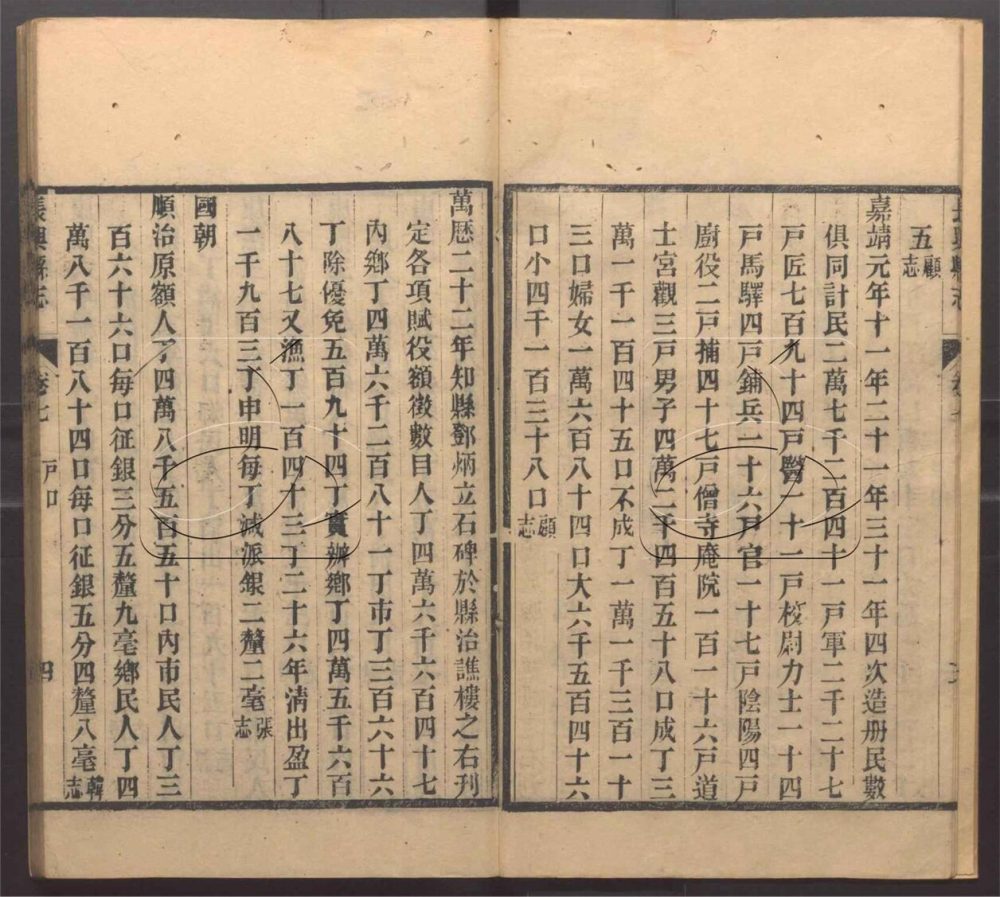 五顧志
嘉靖元年十一年二十一年三十一年四次造册民數
俱同計民二萬七千二百四十一戶軍二千二十七
戶匠七百九十四戶醫一十一戶校尉力士一十四
戶馬驛四戶鋪兵一十六戶官一十七戶陰陽四戶
廚役二戶捕四十七戶僧寺庵院一百一十六戶道
士宮觀三戶男子四萬二千四百五十八口成丁三
萬一千一百四十五口不成丁一萬一千三百一十
三口婦女一萬六百八十四口大六千五百四十六
口小四千一百三十八口顧志
萬歷二十二年知縣鄧炳立石碑於縣治譙樓之右刊
定各項賦役額徵數目人丁四萬六千六百四十七
內鄉丁四萬六千二百八十一丁市丁三百六十六
丁除優免五百九十四丁實辦鄉丁四萬五千六百
八十七又漁丁一百四十三丁二十六年清出盈丁
一千九百三丁申明每丁減派銀二釐二毫張志
國朝
順治原額人丁四萬八千五百五十口內市民人丁三
百六十六口每口征銀三分五釐九毫鄉民人丁四
萬八千一百八十四口每口征銀五分四釐八毫韓志
長興縣志 卷七 戶口 四